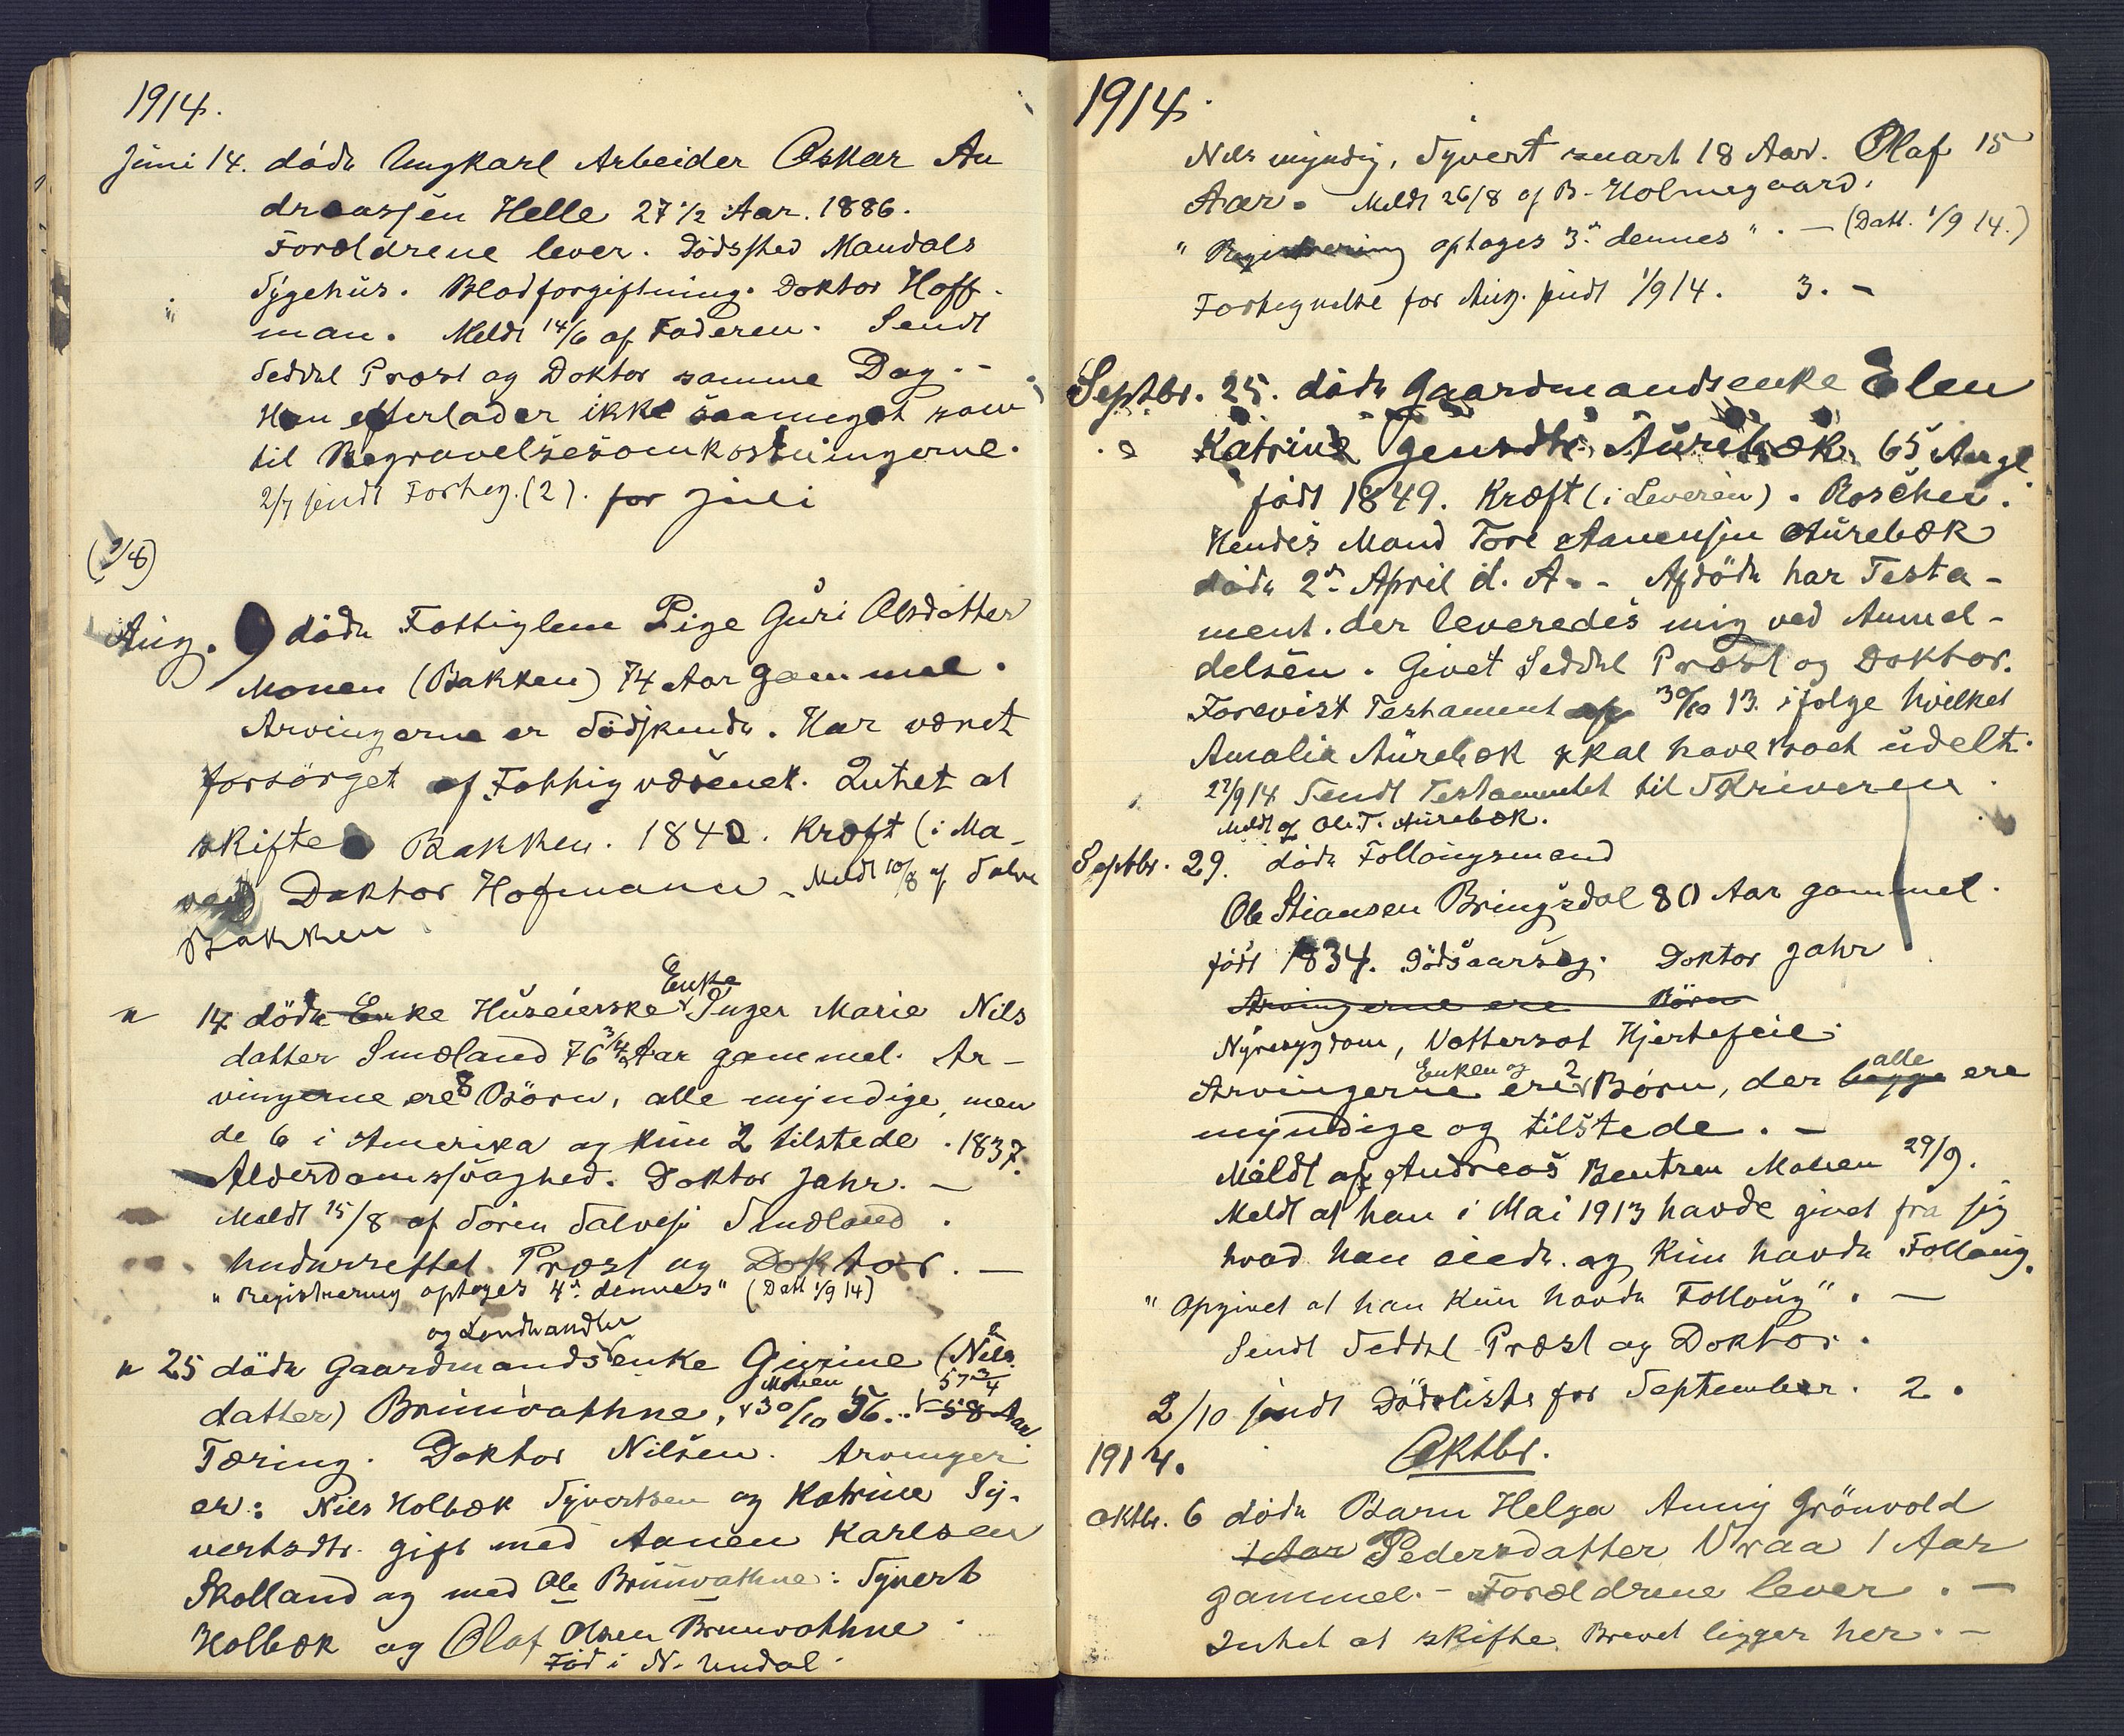 1914.
Juni 14. döde Ungkarl Arbeider Oskar An
dreassen Helle 27 1/2 Aar. 1886.
Forældrene lever. Dödssted Mandals
Sygehus. Blodforgiftning. Doktor Hoff-
man. Meldt 14/6 af Faderen. Sendt
Seddel Præst og Doktor samme Dag. -
Han efterlader ikke saameget som
til Begravelsesomkostningerne.
2/7 sendt Forteg. (2). for Juli
(3/8)
Aug. 9 döde Fattiglem Pige Guri Olsdatter
Monen (Bakken) 74 Aar gammel.
Arvingerne er Södskende. Har været
forsörget af Fattigvæsenet. Intet at
skifte Bakken. 1840. Kræft (i Ma-
ven) Doktor Hofmann - Meldt 10/8 af Salve
Bakken
" 14 döde Enke Huseierske Enke Inger Marie Nils
datter Smæland 76 3/4 Aar gammel. Ar-
vingerne ere 8 Börn, alle myndige, men
de 6 i Amerika og kun 2 tilstede. 1837.
Alderdomssvaghed. Doktor Jahr. -
Meldt 15/8 af Sören Salves. Smæland.
Underrettet Præst og Doktor. -
" Registrering optages 4de dennes" (Datt 1/9 14)
og Landhandler
" 25 döde Gaardmandsenke Gurine (Nils
datter) Brunvathne, Monen 30/10 56. 57 3/4 58 Aar
Tæring. Doktor Nilsen. Arvinger
er: Nils Holbæk Syvertsen og Katrine Sy-
vertsdtr. gift med Aanen Karlsen
Skolland og med Ole Brunvathne: Syvert
Holbæk og Olaf Olsen Brunvathne.
Föd i N. Undal.
1914.
Nils myndig, Syvert snart 18 Aar. Olaf 15
Aar. Meldt 26/8 af B. Holmegaard.
" Registrering optages 3de dennes". - (Datt. 1/9 14.)
Fortegnelse for Aug. sendt 1/9 14. 3. -
Septbr. 25. döde Gaardmandsenke Elen
Katrine Jensdtr. Aurebæk 65 Aar gl
födt 1849. Kræft (i Leveren). Roscher.
Hendes Mand Tore Aanensen Aurebæk
döde 2den April d. A. - Afdöde har Testa-
ment. der leveredes mig ved Anmel-
delsen. Givet Seddel Præst og Doktor.
Forevist Testament af 30/10 13. ifölge hvilket
Amalie Aurebæk skal have Boet udelt.
27/9 14 Sendt Testamentet til Skriveren.
Meldt af Ole T. Aurebæk.
Septbr. 29. döde Follaugsmand
Ole Stiansen Bringsdal 80 Aar gammel.
födt 1834. Dödsaarsag. Doktor Jahr
Arvingerne ere Börn
Nyresygdom, Vattersot Hjertefeil.
Arvingerne Enken og ere 2 Börn, der begge alle ere
myndige og tilstede. -
Meldt af Andreas Bentsen Monen 29/9.
Meldt at han i Mai 1913 havde givet fra sig
hvad han eiede. og kun havde Follaug.
" Opgivet at han kun havde Follaug". -
Sendt Seddel Præst og Doktor.
2/10 sendt Dödsliste for September. 2.
1914. Oktbr.
Oktbr. 6 döde Barn Helga Anny Grönvold
1 Aar Pedersdatter Vraa 1 Aar
gammel. - Forældrene lever. -
Intet at skifte. Brevet ligger her. -